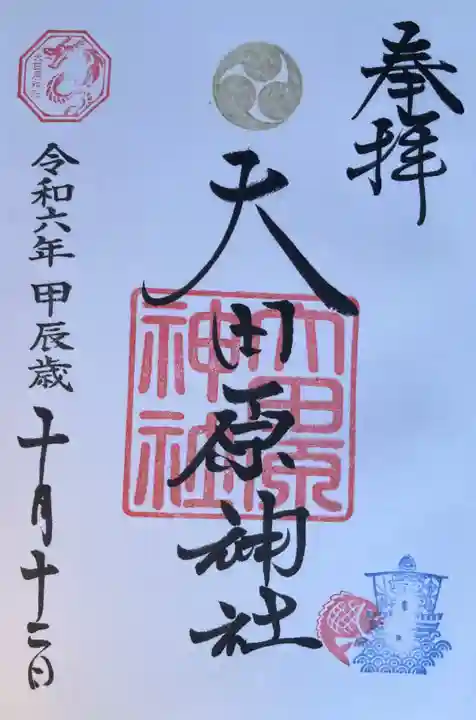 奉拝
大田原神社
大田原
神社
令和六年甲辰歳十月十二日